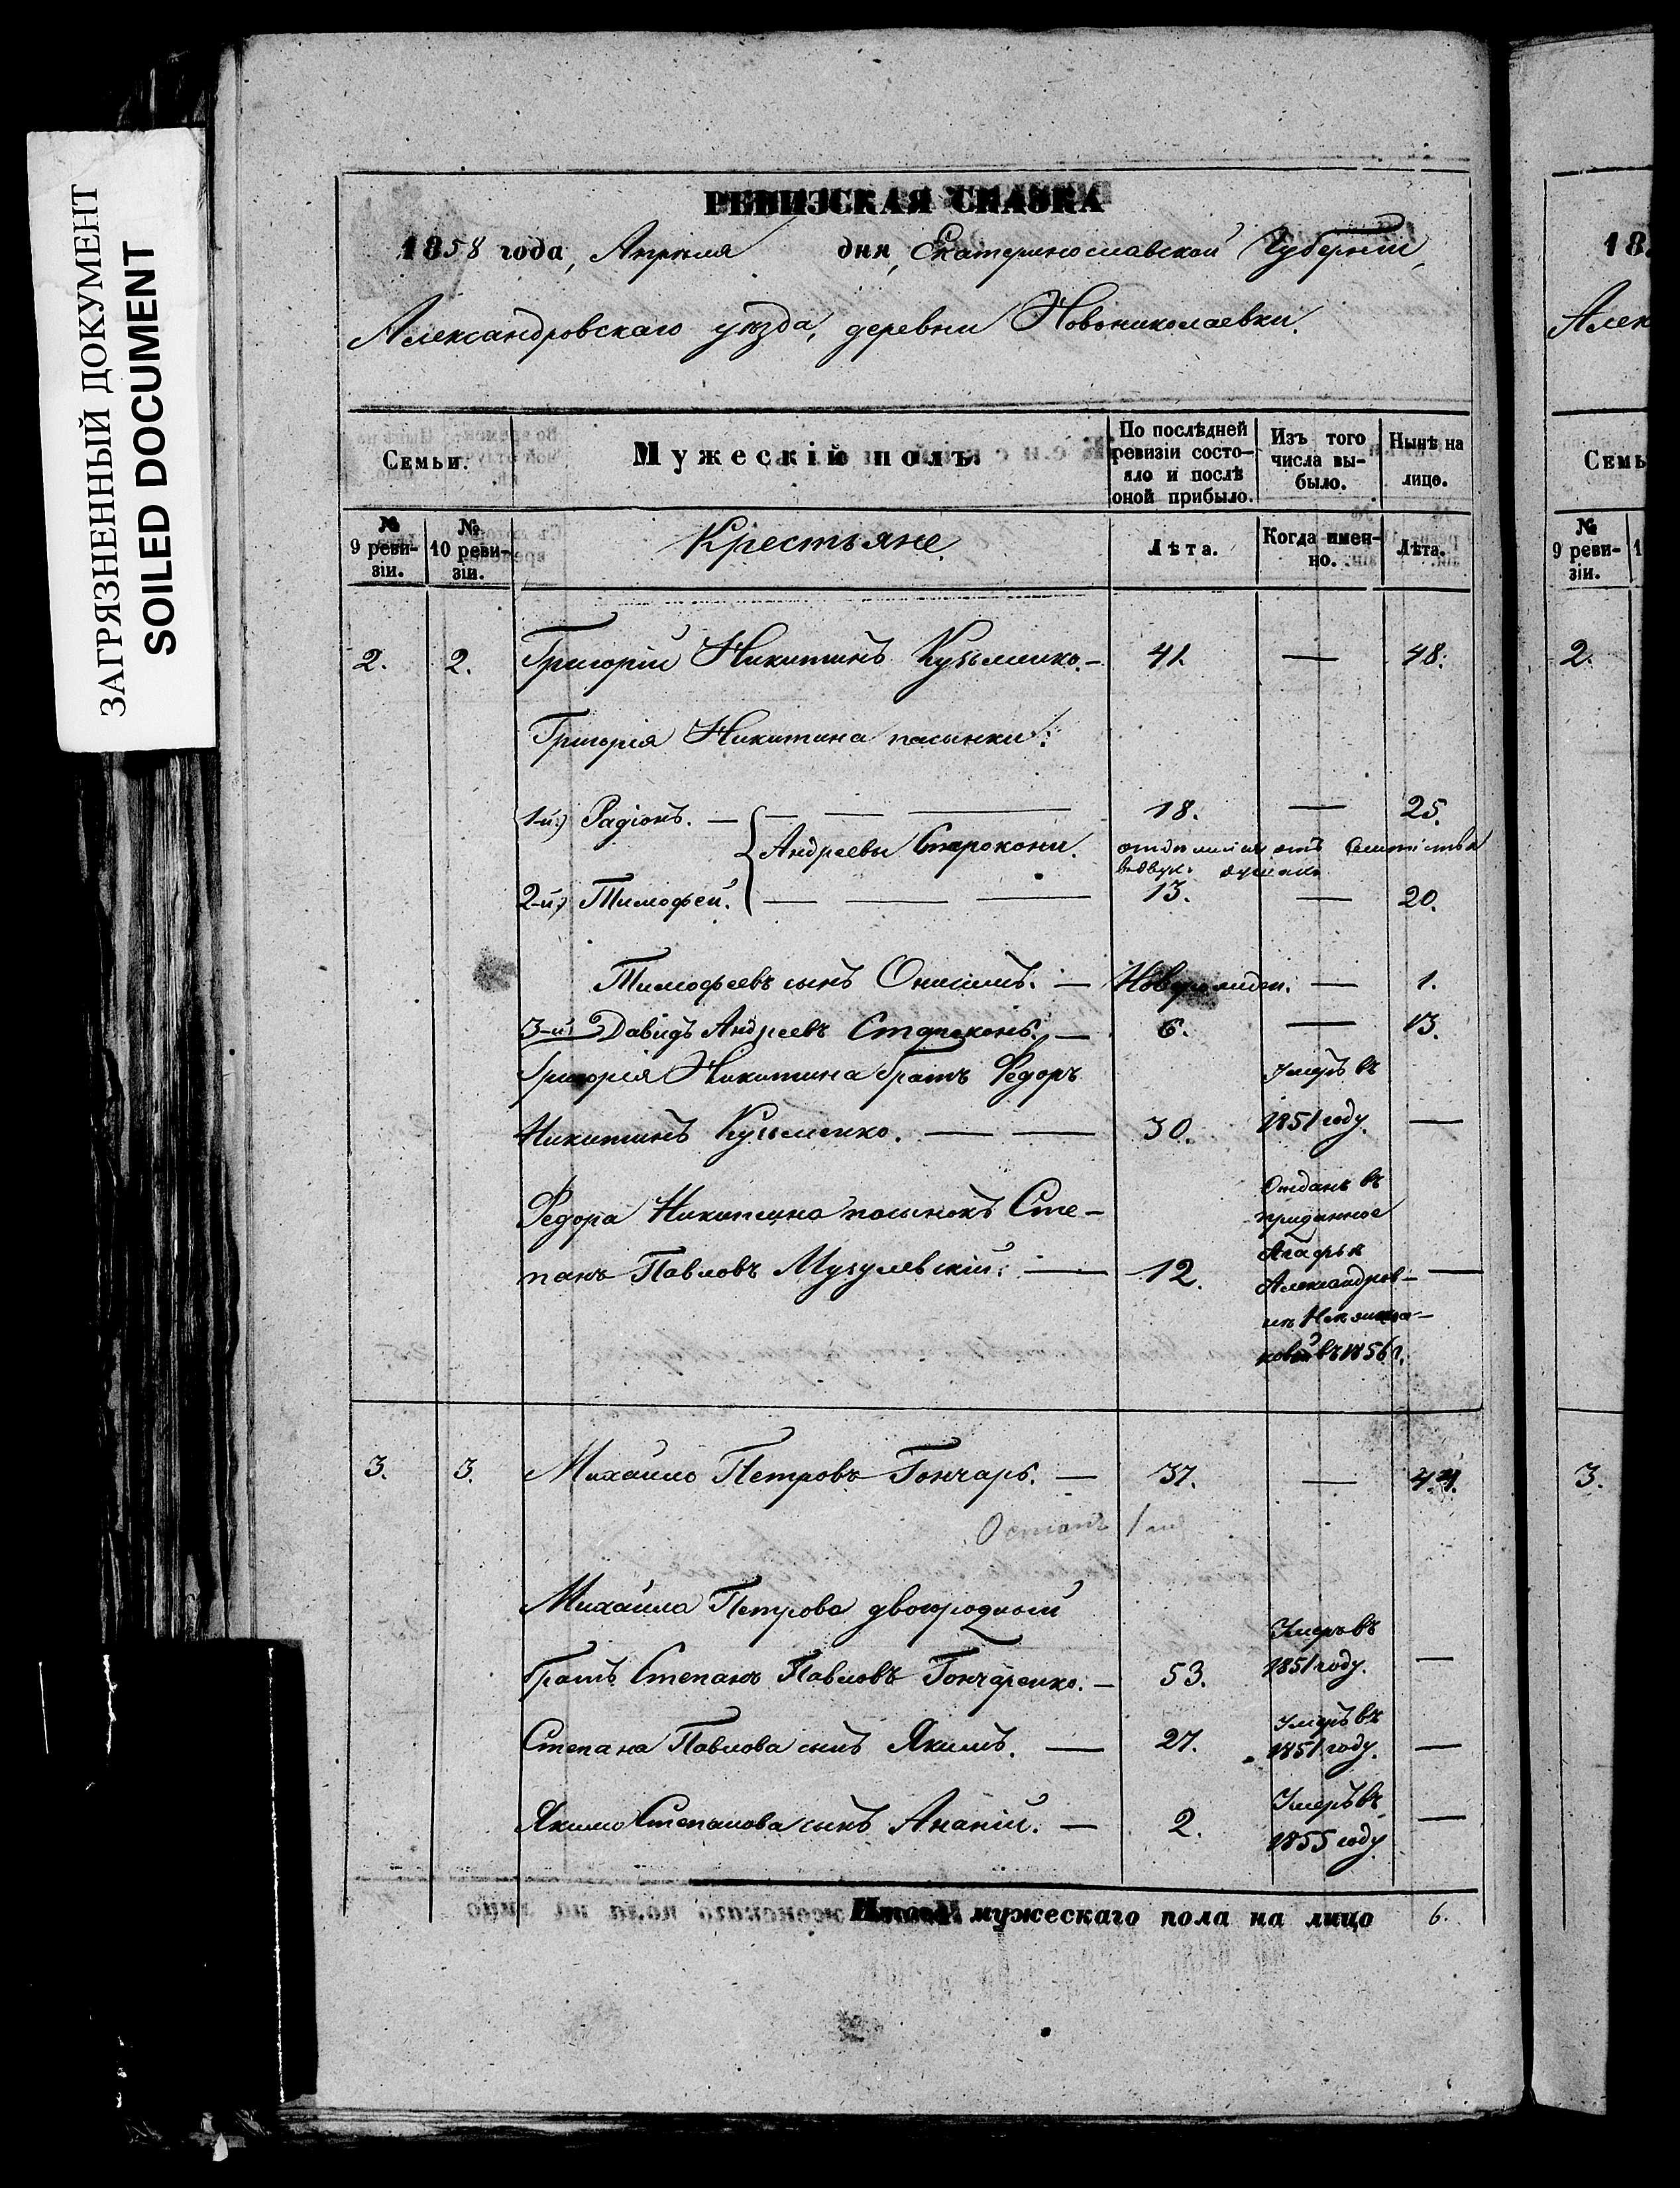 ЗАГРЯЗНЕННЫЙ ДОКУМЕНТ
SOILED DOCUMENT
РЕВИЗСКАЯ СКАЗКА
1858 года, Апреля дня, Екатеринославской Губернии,
Александровскаго уезда, деревни Новониколаевки.
Семьи.
Мужескій полъ.
По послѣдней ревизіи состо-
яло и послѣ
оной прибыло.
Изъ того
числа вы-
было.
Нынѣ на
лицо.
№
9 реви-
зіи.
№
10 реви-
зіи.
Крестьяне
Лѣта.
Когда имен-
но.
Лѣта.
2. 2. Григорій Никитинъ Кузьменко. — 41. — 48.
Григорія Никитина пасынки:
1-й) Радіонъ. — — — 18. — 25.
Андреевы Староконь.
2-й) Тимофей. — — — 13. — 20.
Тимофеевъ сынъ Онисимъ. — Новорожден. — 1.
3-й Давидъ Андреевъ Староконь. — 6. — 13.
Григорія Никитина братъ Федоръ
Никитинъ Кузьменко. — — 30. Умеръ въ 1851 году. —
Федора Никитина пасынокъ Сте-
панъ Павловъ Музулевскій: — 12. —
Отданъ въ
приданное
Агафьи
Александров-
въ 1856 г.
3. 3. Михайло Петровъ Гончаръ. — 37. — 44.
Михайла Петрова двоюродный
братъ Степанъ Павловъ Гончаренко. — 53. Умеръ въ 1851 году. —
Степана Павлова сынъ Якимъ. — 27. Умеръ въ 1851 году. —
Якима Степанова сынъ Ананій. — 2. Умеръ въ 1855 году —
Итого мужескаго пола на лицо 6.
18
Алек
Семь
№
9 реви-
зіи.
1
2.
3.